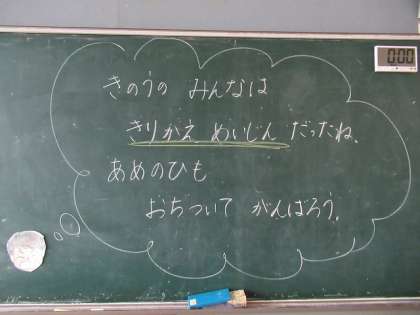 きのうの みんなは
きりかえ めいじん だったね。
あめのひも
おちついて がんばろう。
0:00